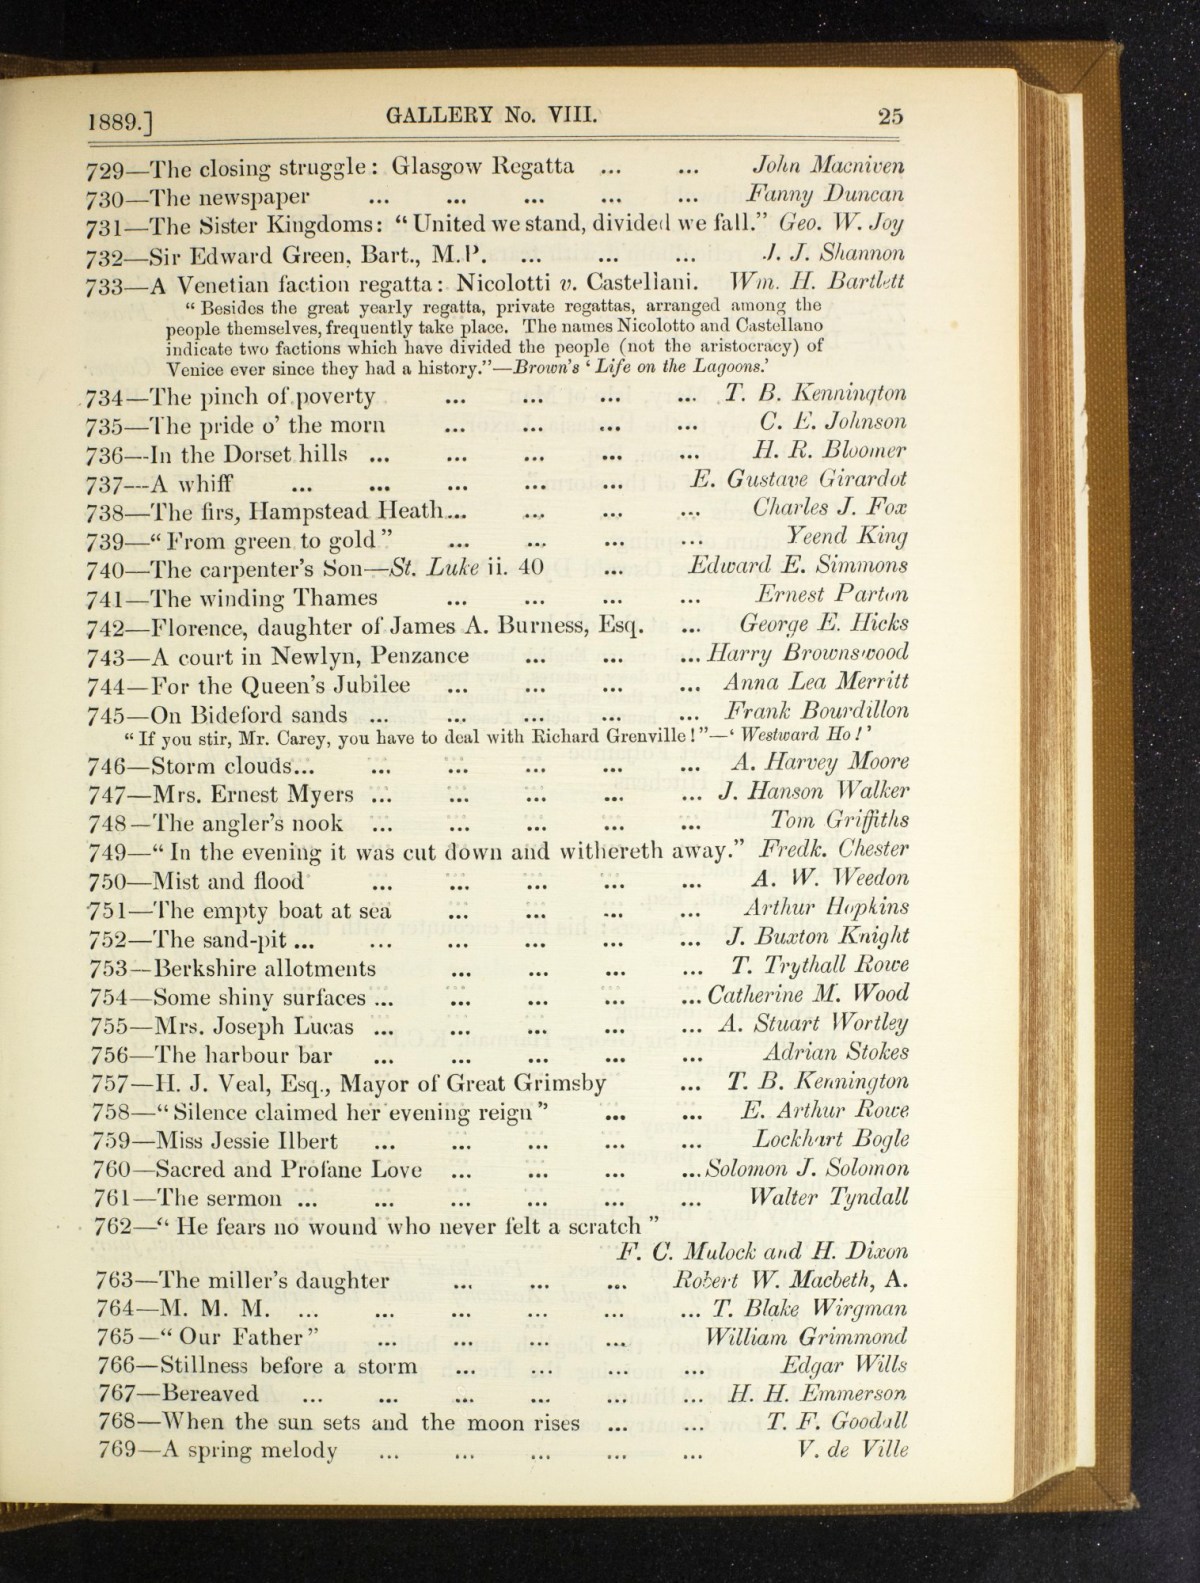 1889.] GALLERY No. VIII. 25
729—The closing struggle: Glasgow Regatta ... ... John Macniven
730—The newspaper ... ... ... ... ... Fanny Duncan
731—The Sister Kingdoms: “United we stand, divided we fall.” Geo. W. Joy
732—Sir Edward Green, Bart., M.P. ... ... ... J. J. Shannon
733—A Venetian faction regatta: Nicolotti v. Casteliani. Wm. H. Bartlett
“Besides the great yearly regatta, private regattas, arranged among the
people themselves, frequently take place. The names Nicolotto and Castellano
indicate two factions which have divided the people (not the aristocracy) of
Venice ever since they had a history.”—Brown's ‘Life on the Lagoons.’
734—The pinch of poverty ... ... ... ... T. B. Kennington
735—The pride o' the morn ... ... ... ... C. E. Johnson
736—In the Dorset hills ... ... ... ... ... H. R. Bloomer
737—A whiff ... ... ... ... ... E. Gustave Girardot
738—The firs, Hampstead Heath... ... ... ... Charles J. Fox
739—“From green to gold” ... ... ... ... Yeend King
740—The carpenter's Son—St. Luke ii. 40 ... Edward E. Simmons
741—The winding Thames ... ... ... ... Ernest Parton
742—Florence, daughter of James A. Burness, Esq. ... George E. Hicks
743—A court in Newlyn, Penzance ... ... ... Harry Brownswood
744—For the Queen's Jubilee ... ... ... ... Anna Lea Merritt
745—On Bideford sands ... ... ... ... ... Frank Bourdillon
“If you stir, Mr. Carey, you have to deal with Richard Grenville!”—‘Westward Ho!’
746—Storm clouds... ... ... ... ... ... A. Harvey Moore
747—Mrs. Ernest Myers ... ... ... ... ... J. Hanson Walker
748—The angler's nook ... ... ... ... ... Tom Griffiths
749—“In the evening it was cut down and withereth away.” Fredk. Chester
750—Mist and flood ... ... ... ... ... A. W. Weedon
751—The empty boat at sea ... ... ... ... Arthur Hopkins
752—The sand-pit ... ... ... ... ... ... J. Buxton Knight
753—Berkshire allotments ... ... ... ... T. Trythall Rowe
754—Some shiny surfaces ... ... ... ... ... Catherine M. Wood
755—Mrs. Joseph Lucas ... ... ... ... ... A. Stuart Wortley
756—The harbour bar ... ... ... ... ... Adrian Stokes
757—H. J. Veal, Esq., Mayor of Great Grimsby ... T. B. Kennington
758—“Silence claimed her evening reign” ... ... E. Arthur Rowe
759—Miss Jessie Ilbert ... ... ... ... ... Lockhart Bogle
760—Sacred and Profane Love ... ... ... ... Solomon J. Solomon
761—The sermon ... ... ... ... ... ... Walter Tyndall
762—“He fears no wound who never felt a scratch”
F. C. Mulock and H. Dixon
763—The miller's daughter ... ... ... Robert W. Macbeth, A.
764—M. M. M. ... ... ... ... ... ... T. Blake Wirgman
765—“Our Father” ... ... ... ... William Grimmond
766—Stillness before a storm ... ... ... ... Edgar Wills
767—Bereaved ... ... ... ... ... ... H. H. Emmerson
768—When the sun sets and the moon rises ... ... T. F. Goodall
769—A spring melody ... ... ... ... ... V. de Ville